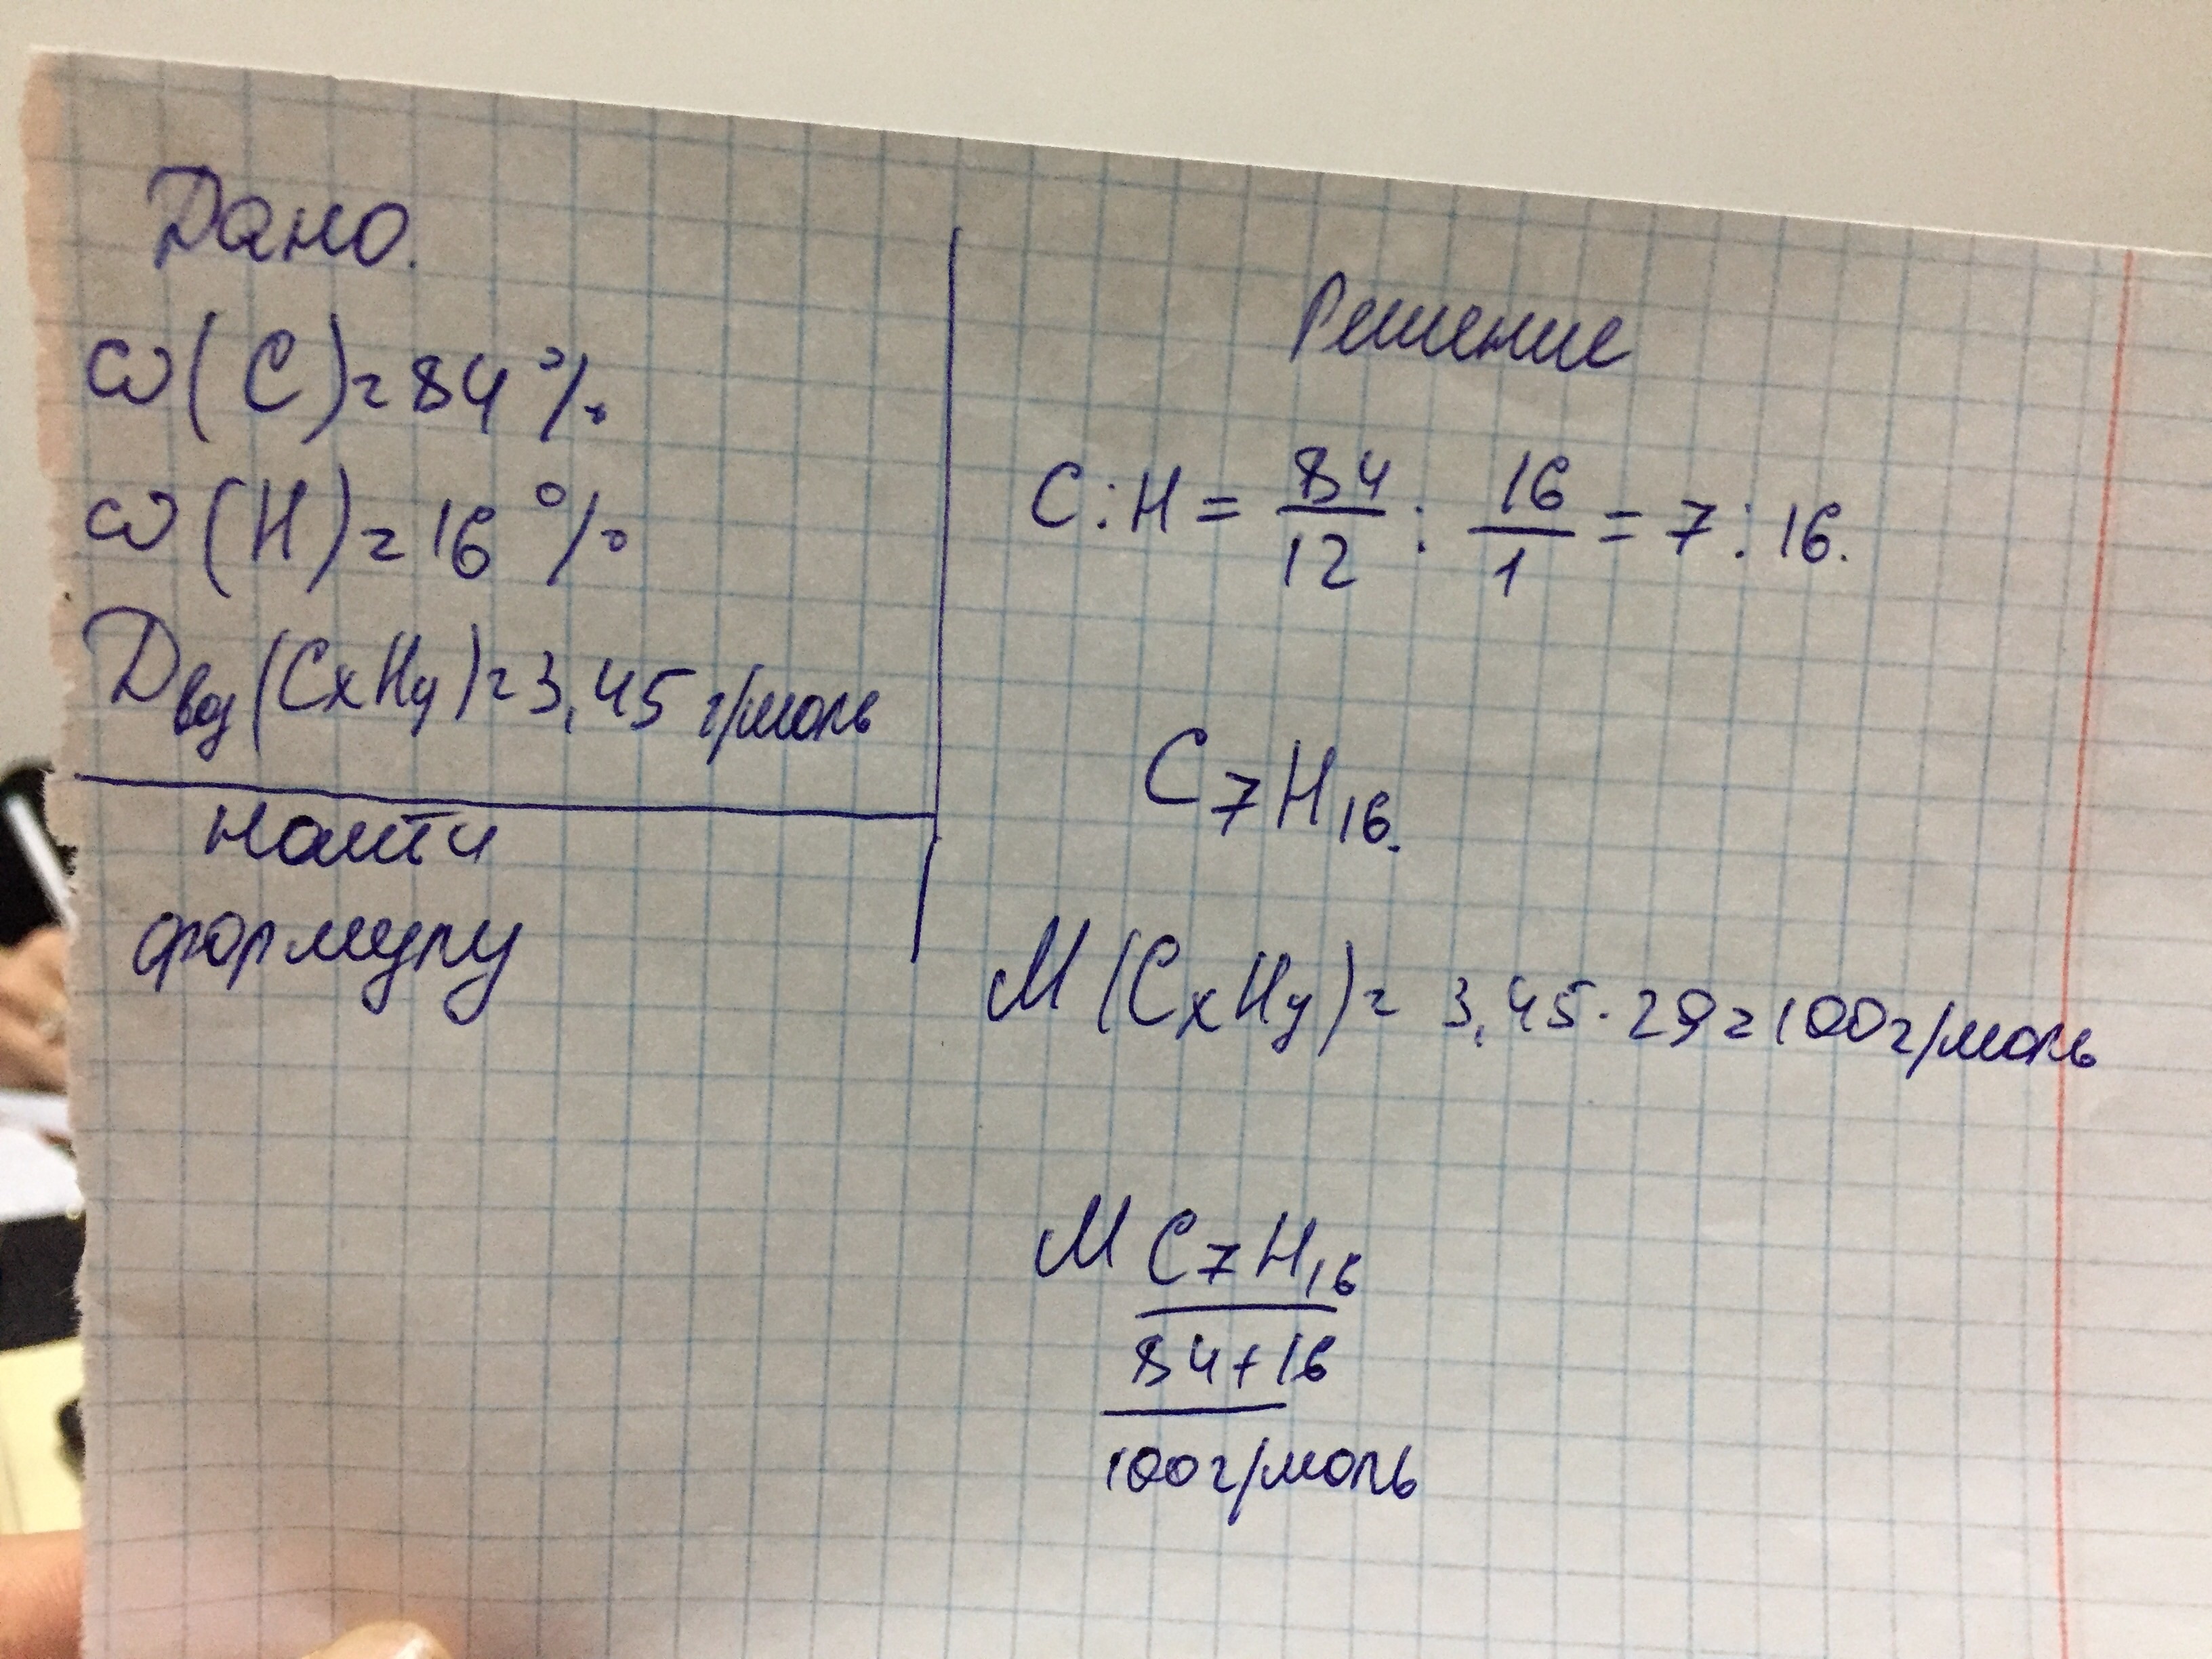 Дано.
ω(C)=84%
ω(H)=16%
Dвоз(CxHy)=3,45 г/моль
найти
формулу
Решение
C:H = 84/12 : 16/1 = 7:16.
C7H16.
M(CxHy)= 3,45·29=100г/моль
M C7H16
84+16
100г/моль